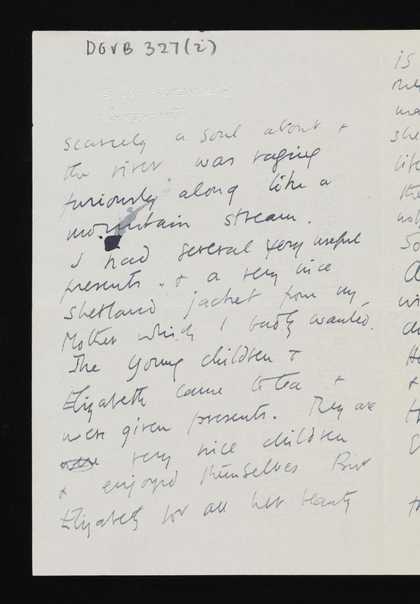 DGVB 327(2)
scarcely a soul about +
the river was raging
furiously along like a
mountain stream.
I had several very useful
presents. + a very nice
Shetland jacket from my
Mother which I badly wanted.
The young children +
Elizabeth came to tea +
were given presents. They are
very nice children
+ enjoyed themselves But
Elizabeth for all her beauty
is